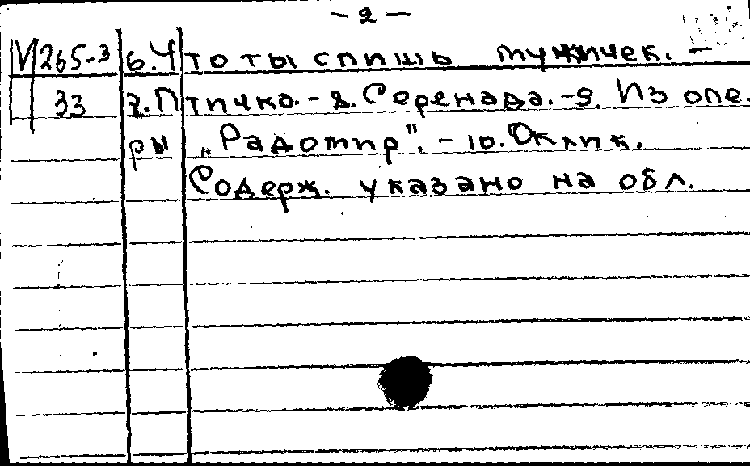 - 2 -
М 265-3 6. Что ты спишь мужичек. -
33 7. Птичка. - 8. Серенада. - 9. Из опе-
ры „Радомир". - 10. Оклик.
Содерж. указано на обл.